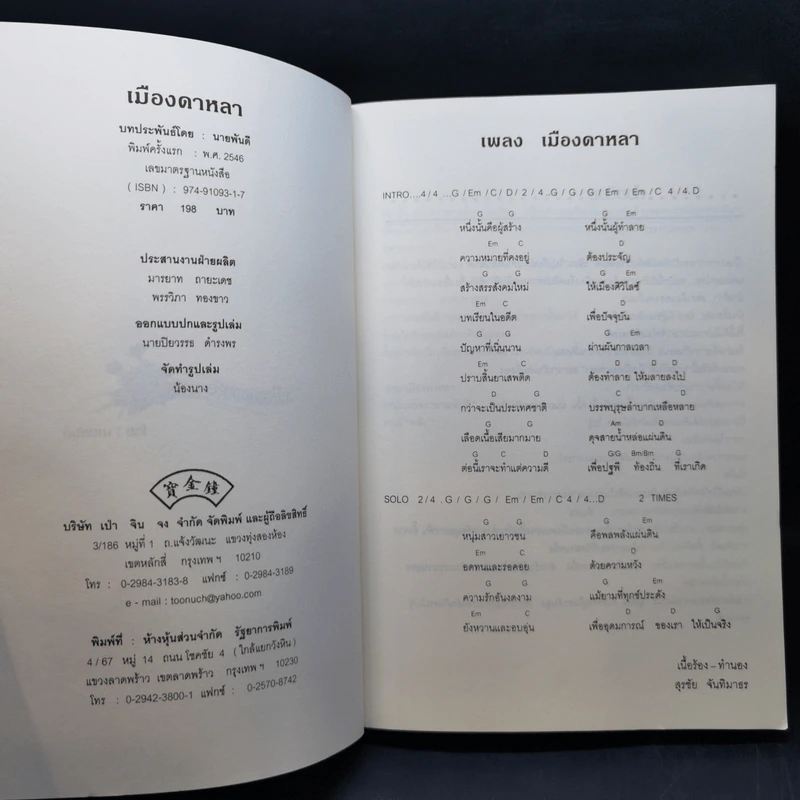 เมืองดาหลา
บทประพันธ์โดย : นายพันดี
พิมพ์ครั้งแรก : พ.ศ. 2546
เลขมาตรฐานหนังสือ
( ISBN ) : 974-91093-1-7
ราคา 198 บาท
ประสานงานฝ่ายผลิต
มารยาท ถายะเดช
พรรวิภา ทองขาว
ออกแบบปกและรูปเล่ม
นายปิยวรรธ ดำรงพร
จัดทำรูปเล่ม
น้องนาง
寶金鐘
บริษัท เป่า จิน จง จำกัด จัดพิมพ์ และผู้ถือลิขสิทธิ์
3/186 หมู่ที่ 1 ถ.แจ้งวัฒนะ แขวงทุ่งสองห้อง
เขตหลักสี่ กรุงเทพ ฯ 10210
โทร : 0-2984-3183-8 แฟกซ์ : 0-2984-3189
e - mail : toonuch@yahoo.com
พิมพ์ที่ : ห้างหุ้นส่วนจำกัด รัฐยาการพิมพ์
4 / 67 หมู่ 14 ถนน โชคชัย 4 ( ใกล้แยกวังหิน )
แขวงลาดพร้าว เขตลาดพร้าว กรุงเทพ ฯ 10230
โทร : 0-2942-3800-1 แฟกซ์ : 0-2570-8742
เพลง เมืองดาหลา
INTRO....4 / 4 ...G / Em / C / D / 2 / 4 ..G / G / G / Em / Em / C 4 / 4. D
G G G Em
หนึ่งนั้นคือผู้สร้าง หนึ่งนั้นผู้ทำลาย
Em C D
ความหมายที่คงอยู่ ต้องประจัญ
G G G Em
สร้างสรรสังคมใหม่ ให้เมืองศิวิไลซ์
Em C D
บทเรียนในอดีต เพื่อปัจจุบัน
G G G Em
ปัญหาที่เนิ่นนาน ผ่านผันกาลเวลา
Em C D D D
ปราบสิ้นยาเสพติด ต้องทำลาย ให้มลายลงไป
D G C D
กว่าจะเป็นประเทศชาติ บรรพบุรุษลำบากเหลือหลาย
G G Am D
เลือดเนื้อเสียมากมาย ดุจสายน้ำหล่อแผ่นดิน
C D G/G Bm/Bm G
ต่อนี้เราจะทำแต่ความดี เพื่อปฐพี ท้องถิ่น ที่เราเกิด
SOLO 2 / 4 .G / G / G / Em / Em / C 4 / 4...D 2 TIMES
G G G Em
หนุ่มสาวเยาวชน คือพลพลังแผ่นดิน
Em C D
อดทนและรอคอย ด้วยความหวัง
G G G Em
ความรักอันงดงาม แม้ยามที่ทุกข์ประดัง
Em C D D G
ยังหวานและอบอุ่น เพื่ออุดมการณ์ ของเรา ให้เป็นจริง
เนื้อร้อง – ทำนอง
สุรชัย จันทิมาธร